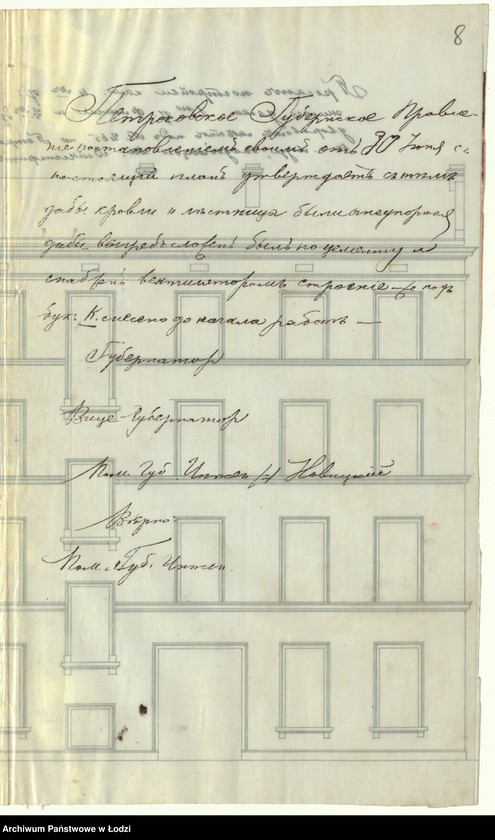 8
Петроковское Губернское Правле-
ние постановленiемъ своимъ отъ 30 Iюня с.г.
настоящiй планъ утверждаетъ съ тѣмъ
дабы кровли и лѣстницы были огнеупорная
дабы выгребъ сложенъ былъ на цементу и
снабженъ вентиляторомъ строенiе подъ
бук: К. снесено до начала работъ —
Губернаторъ
Вице-Губернаторъ
Пом. Губ. Инжен /-/ Новицкiй
Вѣрно:
Пом. Губ. Инжен.
Archiwum Państwowe w Łodzi